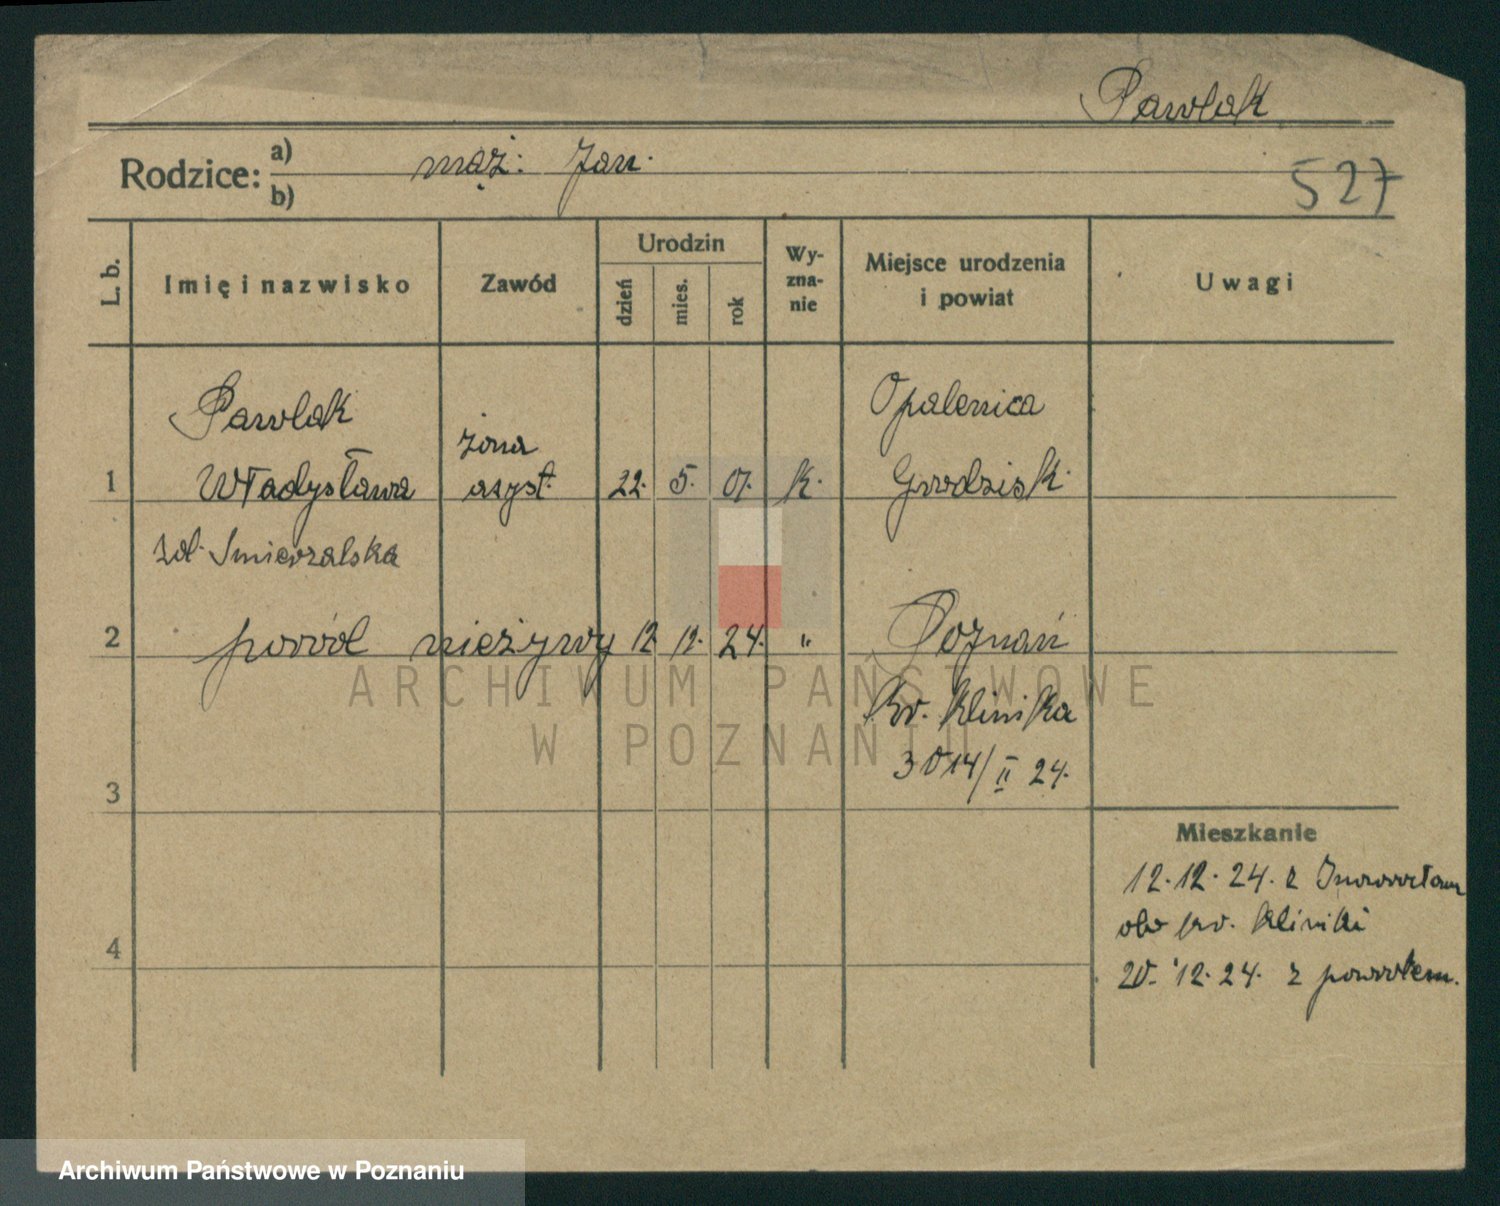 Pawlak
Rodzice: a) mąż: Jan.
b)
527
L. b.
Imię i nazwisko
Zawód
Urodzin
dzień
mies.
rok
Wy-
zna-
nie
Miejsce urodzenia
i powiat
Uwagi
Pawlak
żona
Opalenica
1 Władysława asyst. 22. 5. 01. k. Grodzisk.
Smierzalska
2 poród nieżywy 12. 12. 24. " Poznań
kr. klinika
3
24.
Mieszkanie
12.12.24. z
kr. kliniki
4
20.12.24. z powrotem.
ARCHIWUM PAŃSTWOWE
W POZNANIU
Archiwum Państwowe w Poznaniu